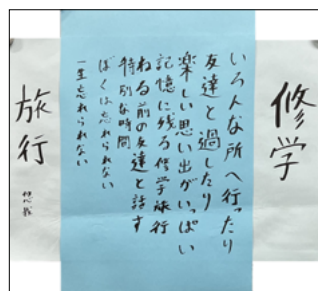 修学
いろんな所へ行ったり
友達と過したり
楽しい思い出がいっぱい
記憶に残る修学旅行
ねる前の友達と話す
特別な時間
ぼくは忘れられない
一生忘れられない
旅行